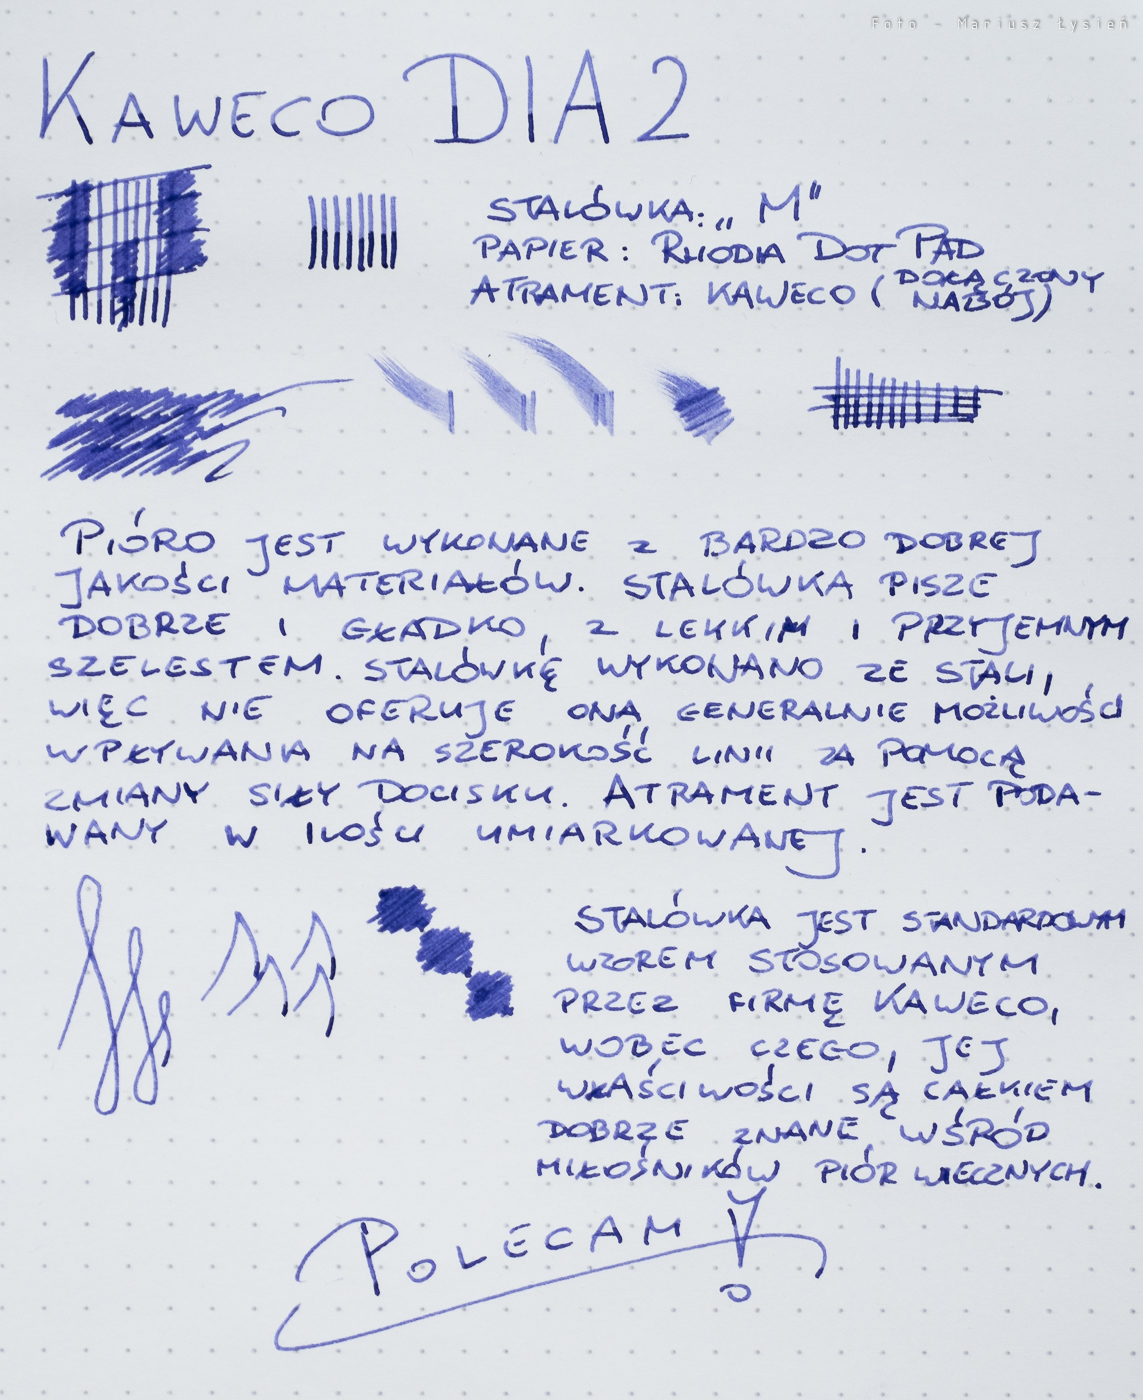 Foto - Mariusz Łysień
KAWECO DIA 2
STALÓWKA: „M"
PAPIER: RHODIA DOT PAD
ATRAMENT: KAWECO (DOŁĄCZONY
NABÓJ)
PIÓRO JEST WYKONANE Z BARDZO DOBREJ
JAKOŚCI MATERIAŁÓW. STALÓWKA PISZE
DOBRZE I GŁADKO, Z LEKKIM I PRZYJEMNYM
SZELESTEM. STALÓWKĘ WYKONANO ZE STALI,
WIĘC NIE OFERUJE ONA GENERALNIE MOŻLIWOŚCI
WPŁYWANIA NA SZEROKOŚĆ LINII ZA POMOCĄ
ZMIANY SIŁY DOCISKU. ATRAMENT JEST PODA-
WANY W ILOŚCI UMIARKOWANEJ.
STALÓWKA JEST STANDARDOWYM
WZOREM STOSOWANYM
PRZEZ FIRMĘ KAWECO,
WOBEC CZEGO, JEJ
WŁAŚCIWOŚCI SĄ CAŁKIEM
DOBRZE ZNANE WŚRÓD
MIŁOŚNIKÓW PIÓR WIECZNYCH.
POLECAM!